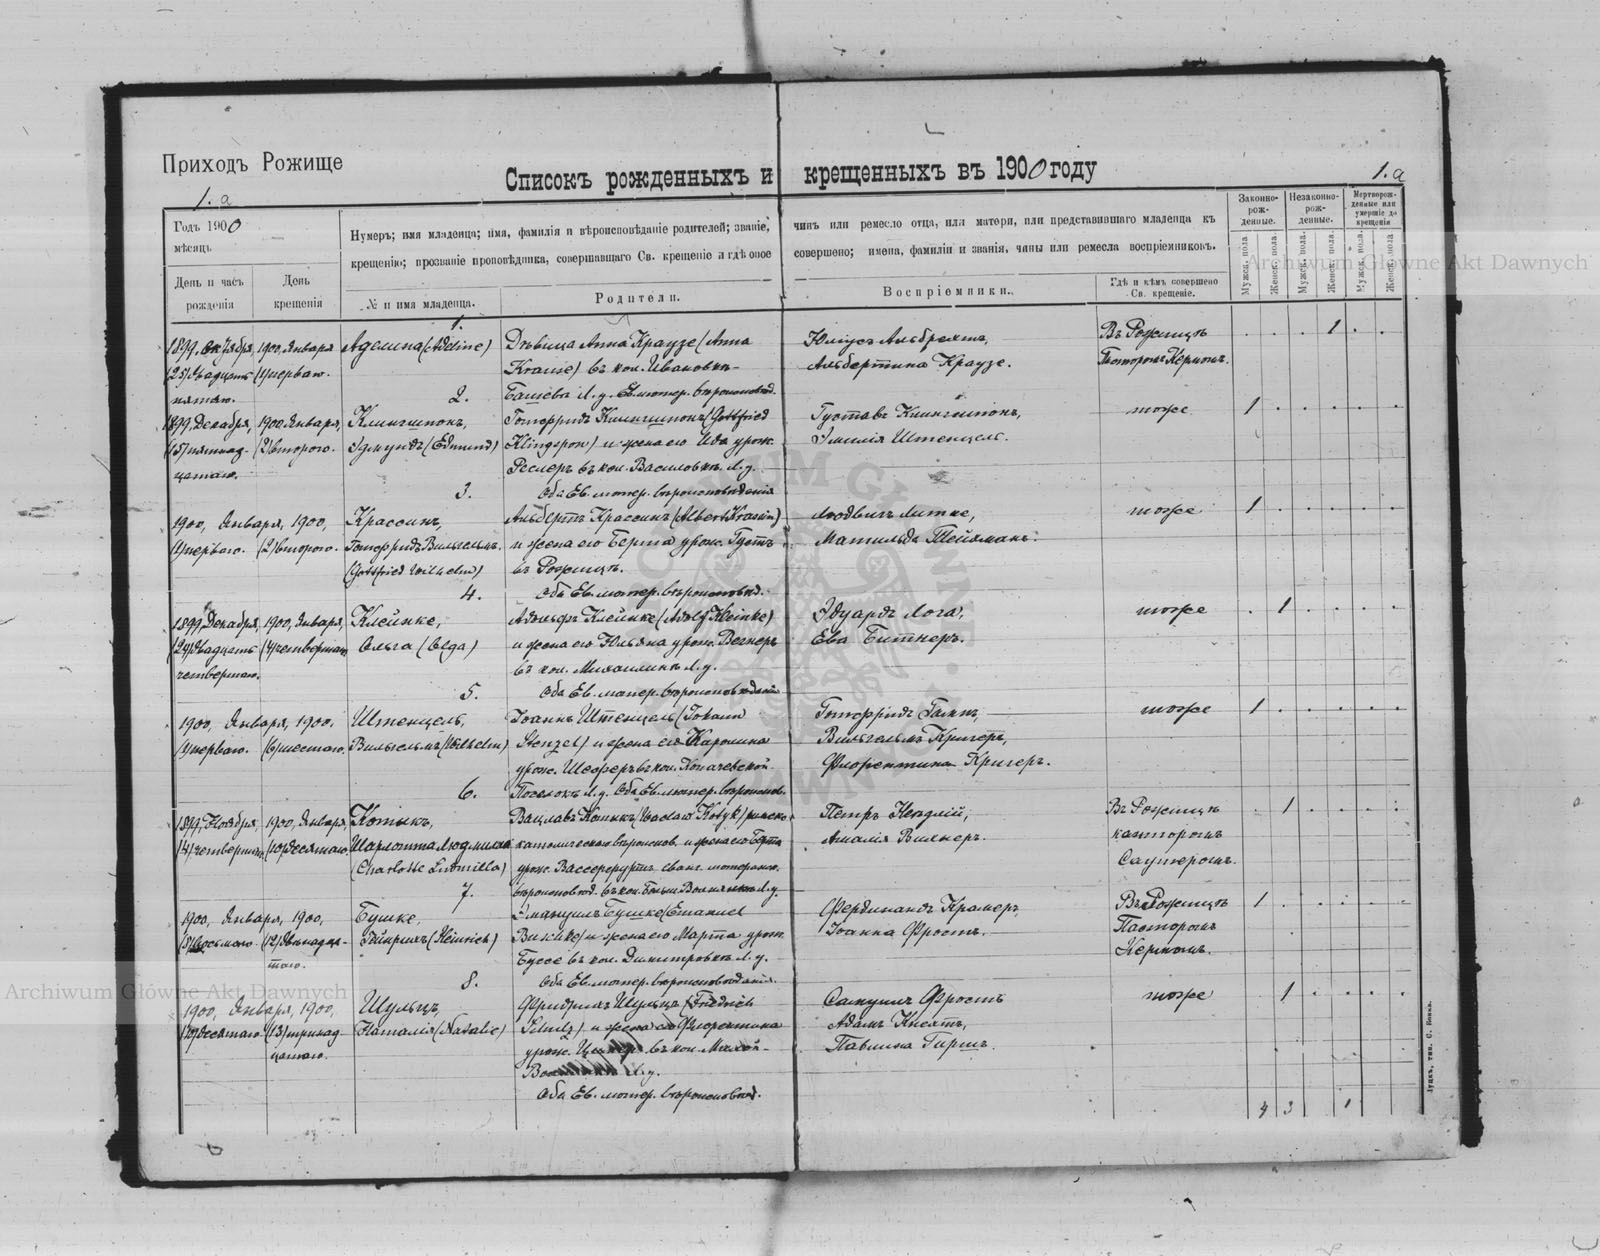 Приходъ Рожище
Списокъ рожденныхъ и крещенныхъ въ 1900 году
1.a
1.a
Годъ 1900
мѣсяцъ
День и часъ рожденія
День крещенія
Нумеръ; имя младенца; имя, фамилія и вѣроисповѣданіе родителей; званіе, чинъ или ремесло отца, или матери, или представившаго младенца къ
крещенію; прозваніе проповѣдника, совершавщаго Св. крещеніе и гдѣ оное совершено; имена, фамиліи и званія, чины или ремесла воспріемниковъ.
№ и имя младенца.
Родители.
Воспріемники.
Гдѣ и кѣмъ совершено Св. крещеніе.
Законно-рож-денные.
Незаконно-рож-денные.
Мертворож-денные или умершіе до крещенія
Мужск. пола.
Женск. пола.
Мужск. пола.
Женск. пола.
Мужск. пола.
Женск. пола
1.
1899, Октября, 1900, Января Аделина (Adeline) Дѣвица Анна Краузе (Anna Юліусъ Альбрехтъ, Въ Рожищѣ 1
(25) двадцать (1) перваго. Krause) въ кол. Ивановка- Альбертина Краузе. Пасторомъ Керномъ.
пятаго. 2. Л. у. Ев. лютер. вѣроисповѣд.
1899 Декабря, 1900 Января, Клингшпонъ, Готфридъ Клингшпонъ (Gottfried Густавъ Клингшпонъ, тоже 1
(15) пятнад- (2) второго. Эдмундъ (Edmund) Klingspon) и жена его Ида урож. Эмилія Штенцель.
цатаго. Реслеръ въ кол. Василовкѣ Л. у.
3. Оба Ев. лютер. вѣроисповѣданія
1900, Января, 1900, Красинъ, Альбертъ Красинъ (Albert Krasin) Людвигъ Литке, тоже 1
(1) перваго. (2) второго. Готфридъ Вильгельмъ. и жена его Берта урож. Густъ Матильда Тейхманъ.
(Gottfried Wilhelm) въ Рожищѣ.
4. Оба Ев. лютер. вѣроисповѣд.
1899 Декабря, 1900, Января, Клейнке, Адольфъ Клейнке (Adolf Kleinke) Эдуардъ Лога, тоже 1
(24) двадцать (4) четвертаго Ольга (Olga) и жена его Юльяна урож. Вегнеръ Ева Битнеръ.
четвертаго. въ кол. Михаилинѣ Л. у.
5. Оба Ев. лютер. вѣроисповѣданія
1900, Января, 1900. Штенцель, Іоаннъ Штенцель (Johann Готфридъ тоже 1
(1) перваго. (6) шестаго. Вильгельмъ (Wilhelm) Stenzel) и жена его Каролина Вильгельмъ Кригеръ,
урож. Шеферъ въ кол. Копачевской Флорентина Кригеръ.
6. Поселокъ Л. у. Оба Ев. лютер. вѣроисповѣд.
1899, Ноября, 1900, Января, Котыкъ, Вацлавъ Котыкъ (Waclaw Kotyk) римско- Петръ Въ Рожищѣ 1
(4) четвертаго (10) десятаго. Шарлотта Людмилла католическаго вѣроисповѣд. и жена его Берта Амалія Вилнеръ. канторомъ
(Charlotte Ludmilla) урож. Вассерфуртъ еванг. лютеранск. Саутеромъ.
7. вѣроисповѣд. въ кол. Л. у.
1900, Января, 1900, Бушке, Эмануилъ Бушке (Emanuel Фердинандъ Крамеръ, Въ Рожищѣ 1
(8) восьмаго. (12) двѣнадца- Гейнрихъ (Heinrich) Buschke) и жена его Марта урож. Іоанна Фростъ. Пасторомъ
таго. Буссе въ кол. Димитровкѣ Л. у. Керномъ.
8. Оба Ев. лютер. вѣроисповѣданія.
1900, Января, 1900, Шульцъ, Фридрихъ Шульцъ (Fridrich Самуилъ Фростъ тоже 1
(10) десятаго (13) тринад- Наталія (Natalie) Schulz) и жена его Флорентина Адамъ
цатаго. урож. въ кол. Малой- Павлина Гиршъ.
Л. у.
Оба Ев. лютер. вѣроисповѣд.
4 3 1
Луцкъ, тип. С. Бонка.
Archiwum Główne Akt Dawnych
Archiwum Główne Akt Dawnych